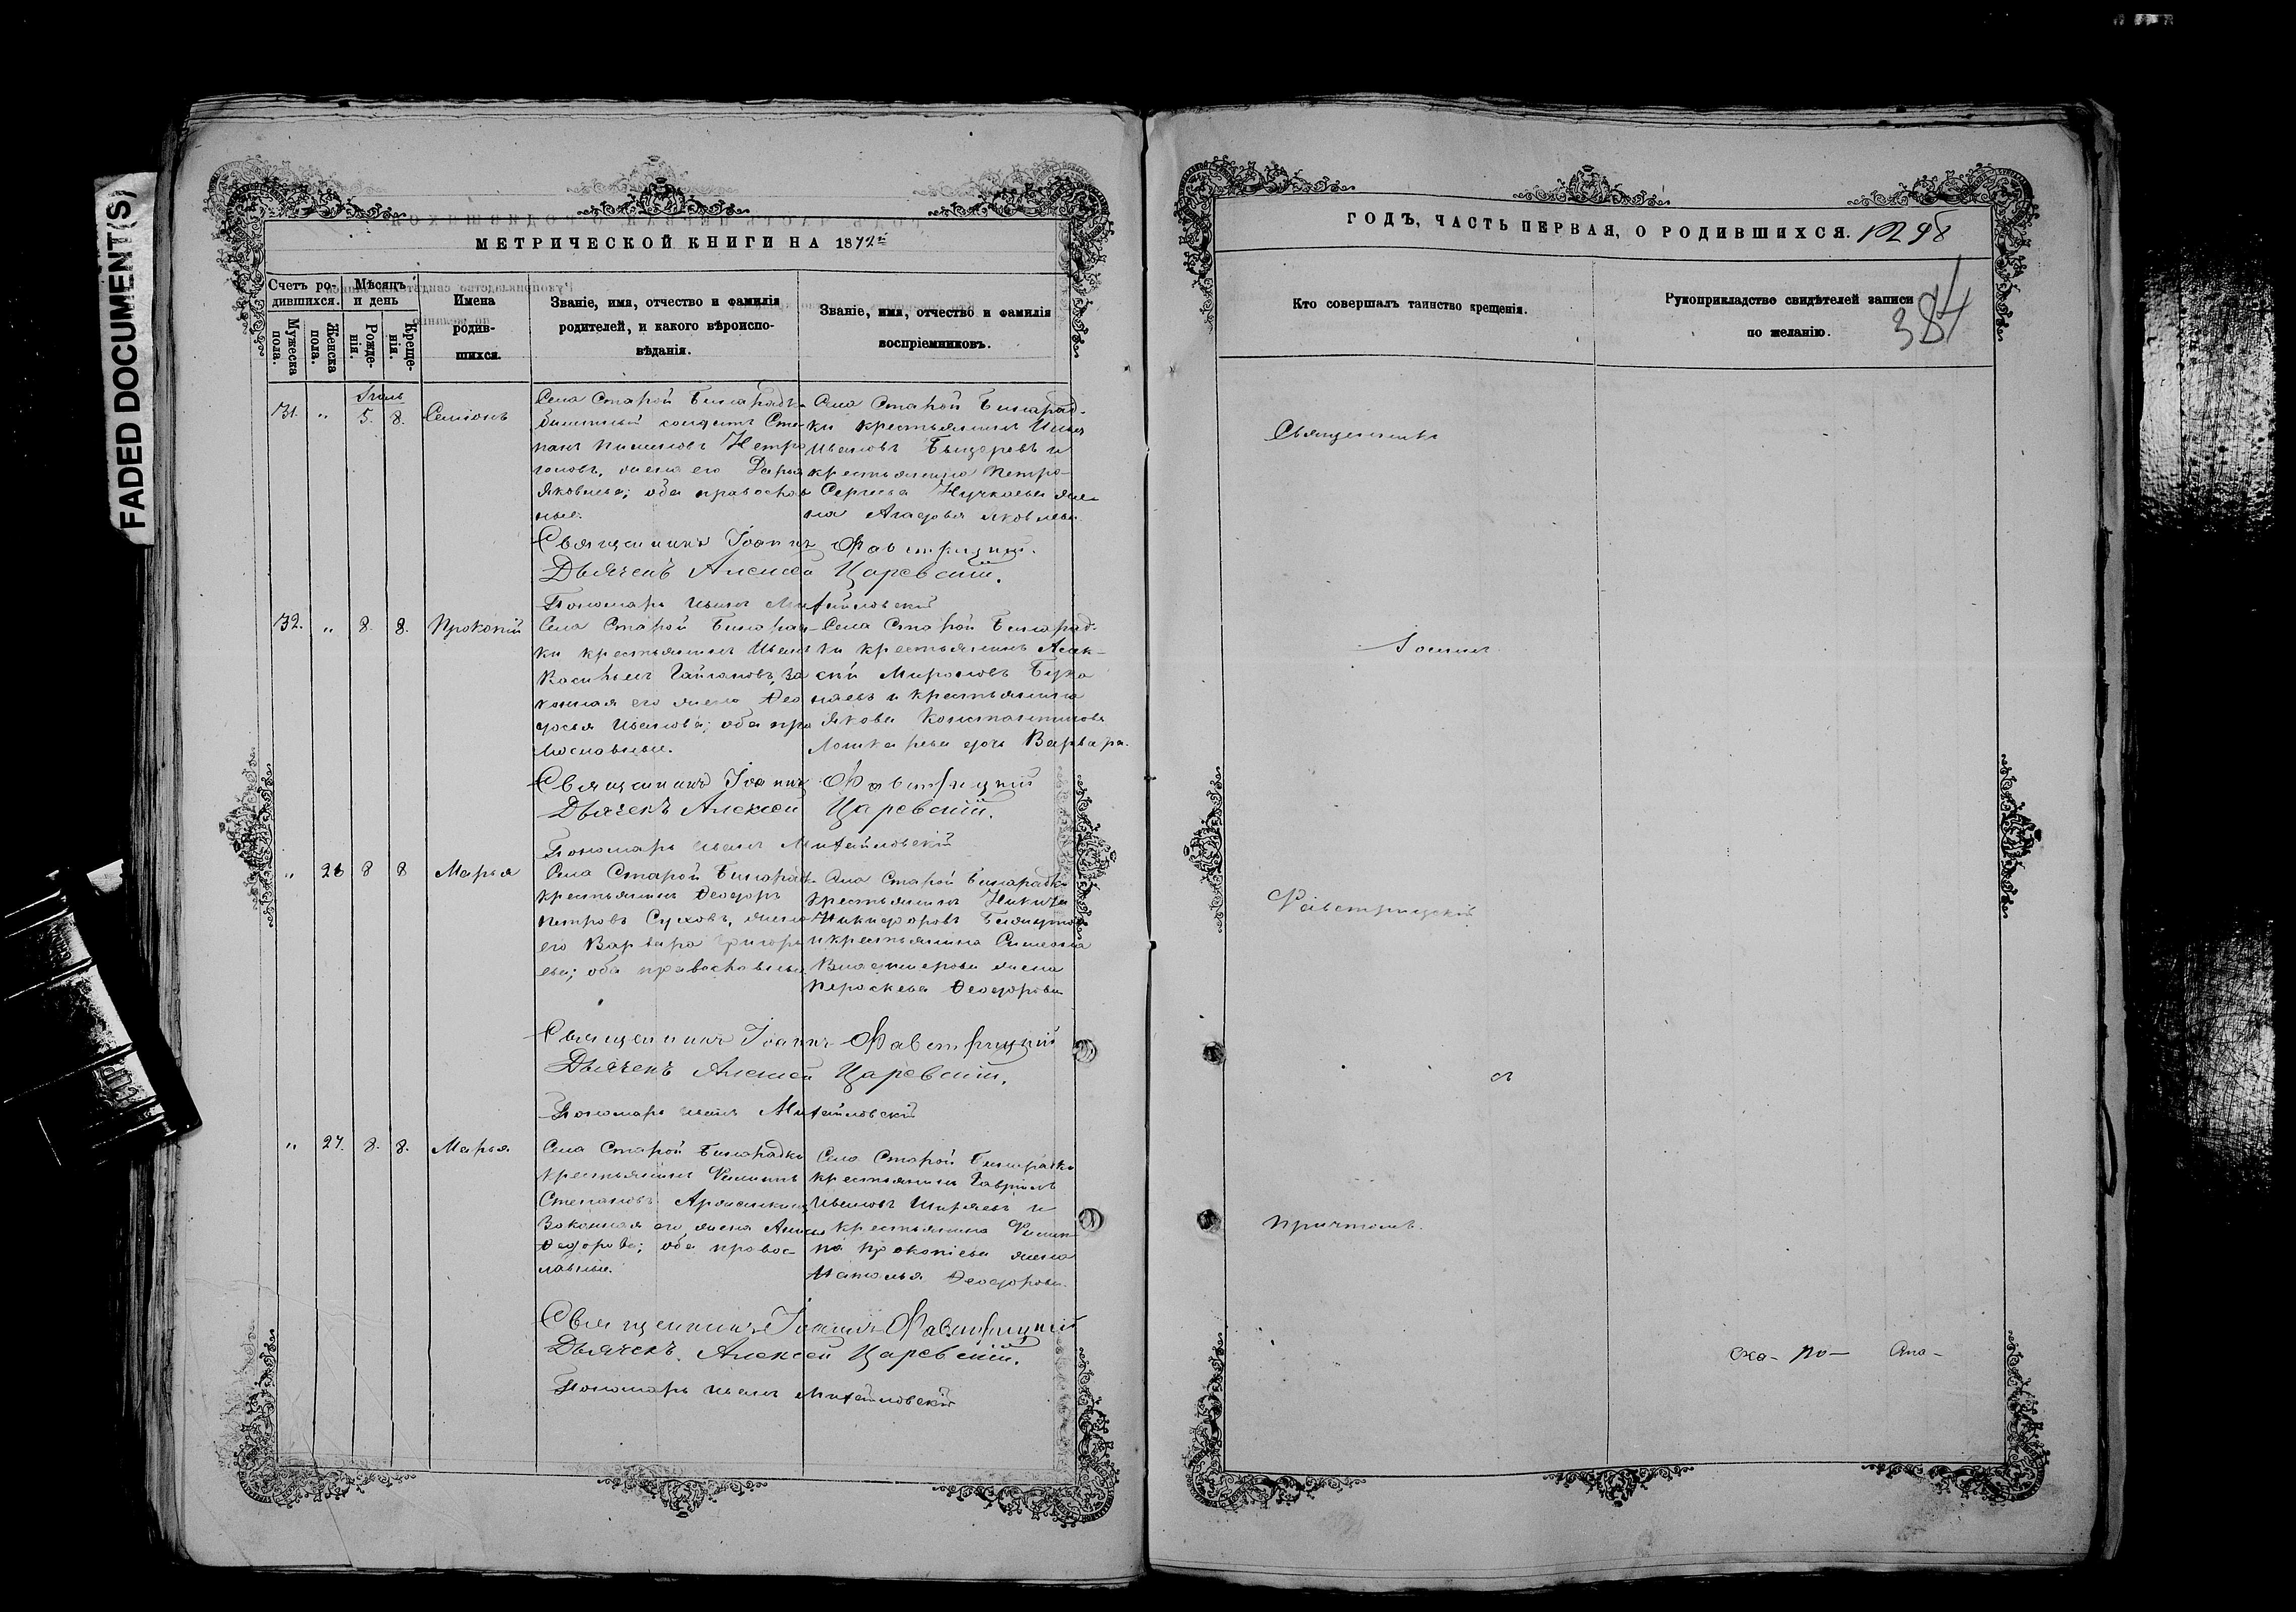 FADED DOCUMENT(S)
МЕТРИЧЕСКОЙ КНИГИ НА 1872й
Счетъ ро-
дившихся.
Мужеска пола.
Женска пола.
Мѣсяцъ
и день
Рожде-
нія.
Креще-
нія.
Имена
родив-
шихся.
Званіе, имя, отчество и фамилія
родителей, и какого вѣроиспо-
вѣданія.
Званіе, имя, отчество и фамилія
воспріемниковъ.
31. „ 5. 8. Симіонъ
Села Старой Бинарадки
солдатъ Сте-
панъ
жена его Дарья
Яковлева; оба православ
ные.
Села Старой Бинарад-
ки крестьянинъ
Ивановъ и
крестьянина Петра
Сергеева же-
на Агафья Яковлева
Священникъ Іоаннъ Фавстрицкій.
Дьячекъ Алексей Царевскій.
Пономарь Иванъ Михайловскій
32. „ 8. 8. Прокопій
Села Старой Бинарад-
ки крестьянинъ Иванъ
Васильевъ за
конная его жена Фео
досья Иванова; оба пра
вославные.
Села Старой Бинарад-
ки крестьянинъ Алек-
сѣй Мироновъ
и крестьянина
Якова Константинова
дочь Варвара.
Священникъ Іоаннъ Фавстрицкій
Дьячекъ Алексей Царевскій.
Пономарь Иванъ Михайловскій
„ 26 8 8 Марья
Села Старой Бинарадки
крестьянинъ Феодоръ
Петровъ Суховъ, жена
его Варвара Григорь
ева; оба православные
Села Старой Бинарадки
крестьянинъ Никита
Никифоровъ
и крестьянина Симеона
Владимерова жена
Параскева Феодорова
Священникъ Іоаннъ Фавстрицкій
Дьячекъ Алексей Царевскій.
Пономарь Иванъ Михайловскій
„ 27. 8. 8. Марья
Села Старой Бинарадки
крестьянинъ Филиппъ
Степановъ
законная его жена Анна
Феодорова; оба правос-
лавные.
Села Старой Бинарадки
крестьянинъ Гавріилъ
Ивановъ Ширяевъ и
крестьянина Филип-
па Прокопіева жена
Наталья Феодорова
Священникъ Іоаннъ Фавстрицкій
Дьячекъ Алексей Царевскій.
Пономарь Иванъ Михайловскій
ГОДЪ, ЧАСТЬ ПЕРВАЯ, О РОДИВШИХСЯ.
384
Кто совершалъ таинство крещенія.
Рукоприкладство свидѣтелей записи
по желанію.
Священникъ
Іоаннъ
Фавстрицкій
съ
причтомъ.